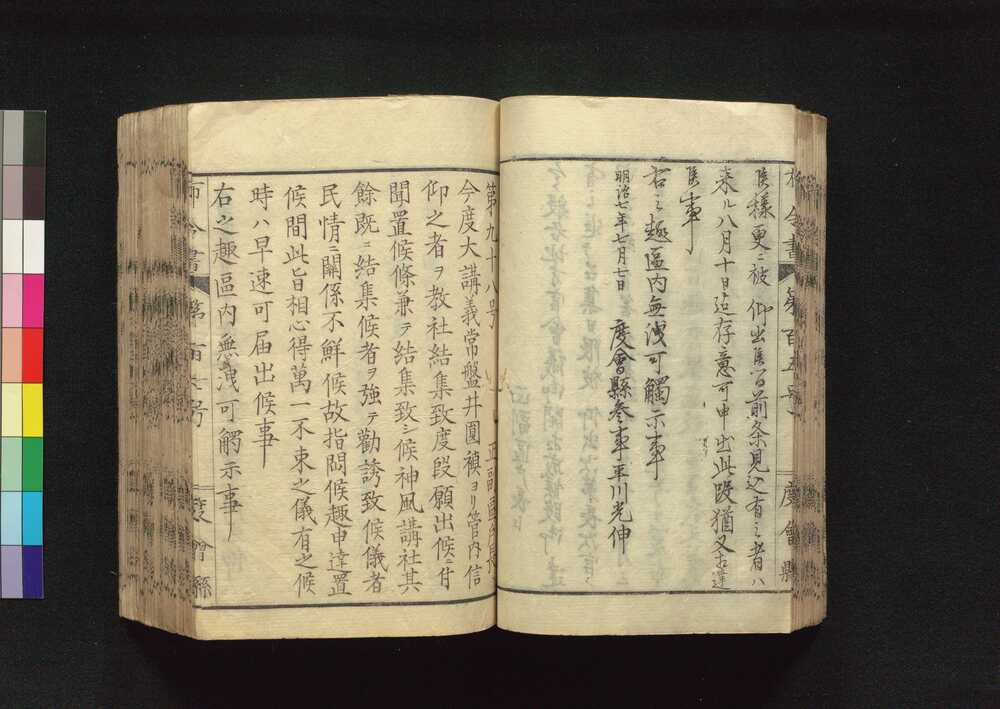 候樣更ニ被 仰出候ニ付前条見込有之者ハ
来ル八月十日迠存意可申出此段猶又相達
候事
右之趣區内無洩可觸示事
明治七年七月七日 度會縣参事平川光伸
第九十八号 正副區戸長
今度大講義常盤井圓禎ヨリ管内信
仰之者ヲ教社結集致度段願出候ニ付
聞置候條兼テ結集致シ候神風講社其
餘既ニ結集候者ヲ強テ勸誘致候儀者
民情ニ關係不鮮候故指問候趣申達置
候間此旨相心得萬一不束之儀有之候
時ハ早速可届出候事
右之趣區内無洩可觸示事